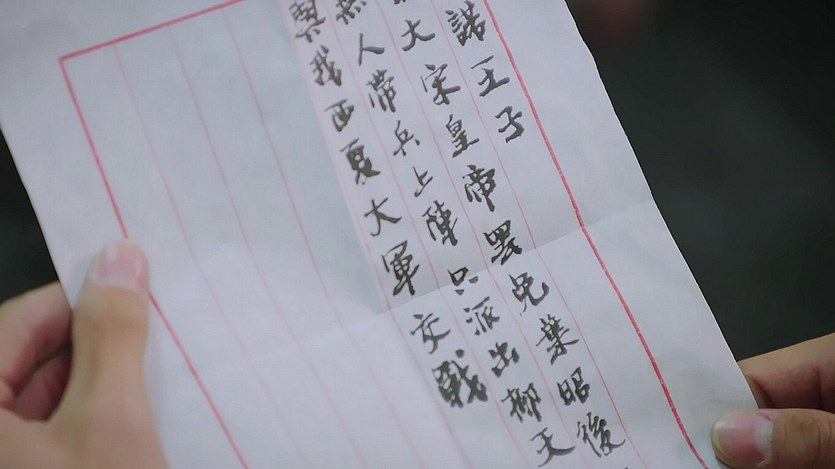 諾王子
大宋皇帝罢免葉昭後
無人帶兵上陣只派出柳天
與我西夏大軍交戰